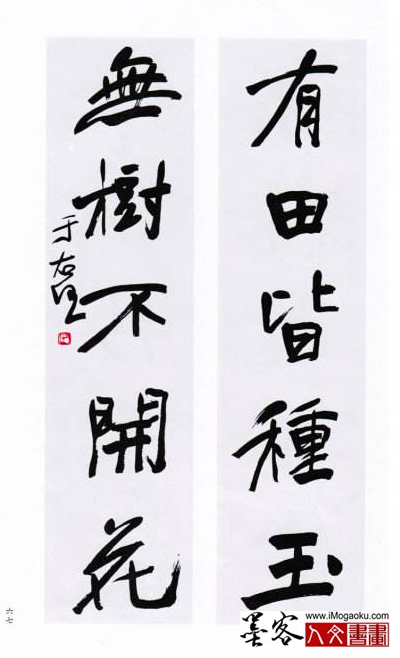 有田皆種玉
無樹不開花
于右任
六七
墨客
www.iMogaoku.com
人文書畫